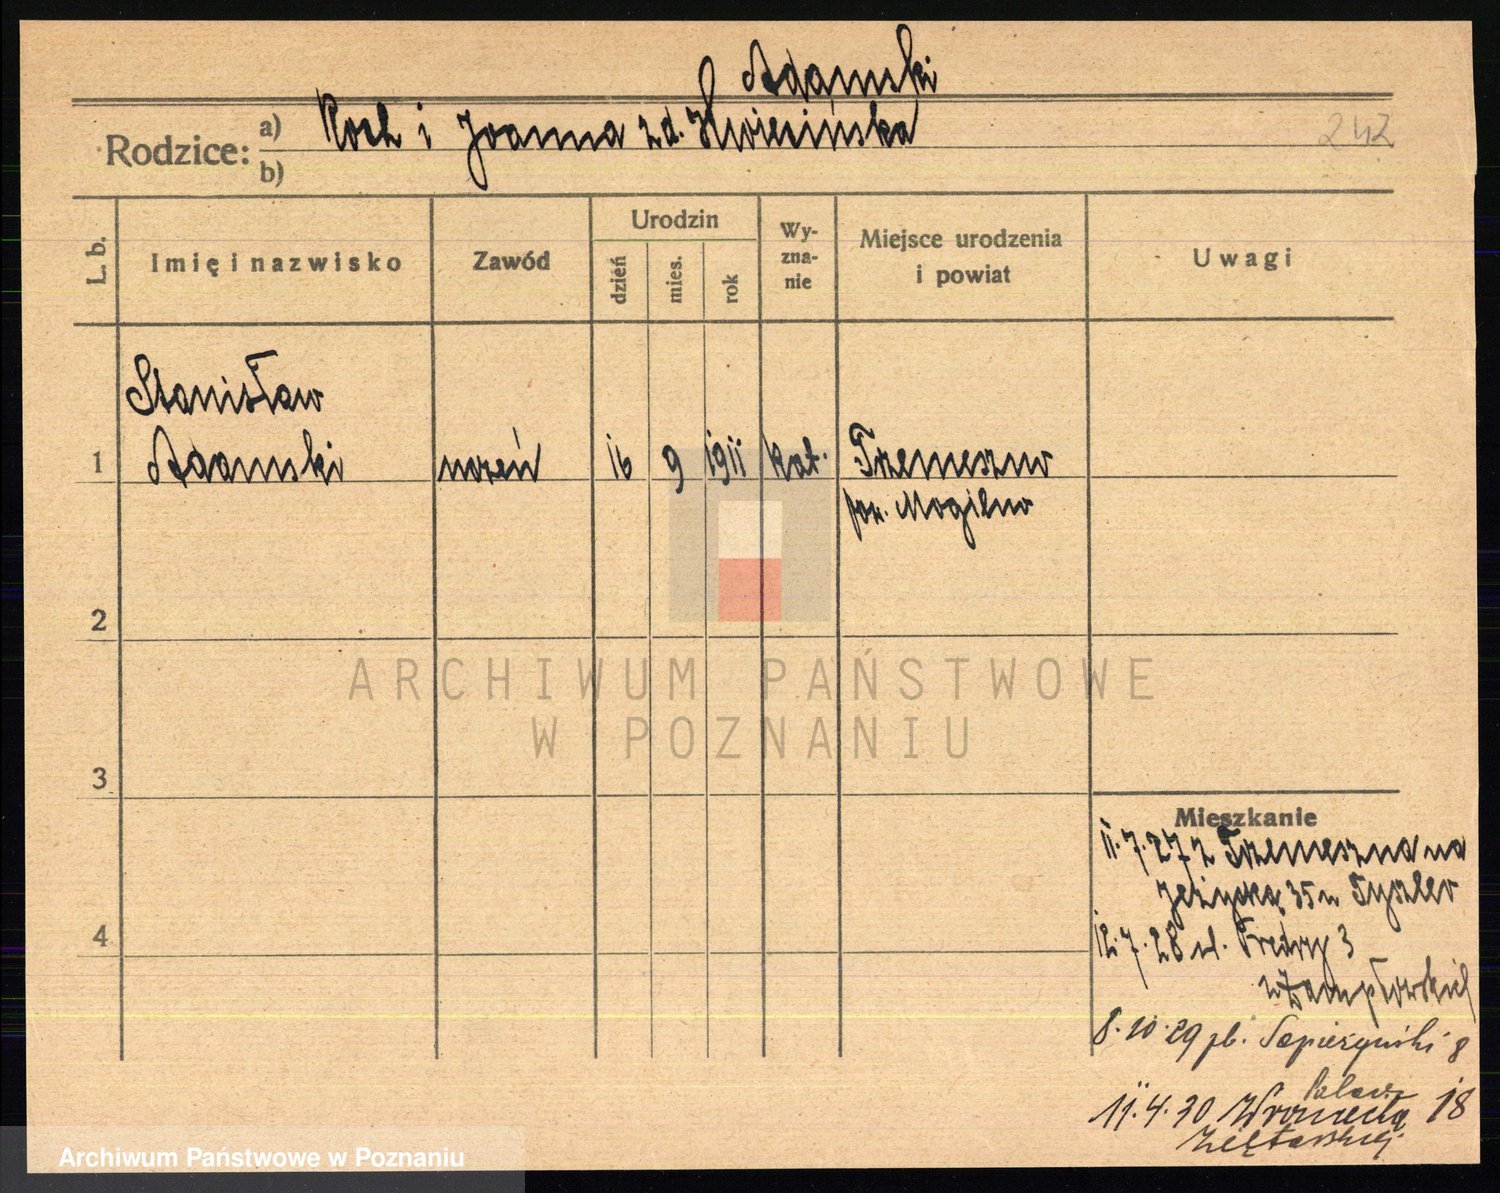 Adamski
Rodzice: a) Roch i Joanna zd. Kwiecińska
b)
242
L. b.
Imię i nazwisko
Zawód
Urodzin
dzień
mies.
rok
Wy-
zna-
nie
Miejsce urodzenia
i powiat
Uwagi
Stanisław
1 Adamski uczeń 16 9 1911 kat. Trzemeszno
pow. Mogilno
2
ARCHIWUM PAŃSTWOWE
W POZNANIU
3
Mieszkanie
11.7.27 z Trzemeszna na
Jeżycką 35 u Tyszler
4
12.7.28 ul. Fredry 3
8.10.29 pl. Sapieżyński 8
11.4.30 Wroniecką 18
Archiwum Państwowe w Poznaniu